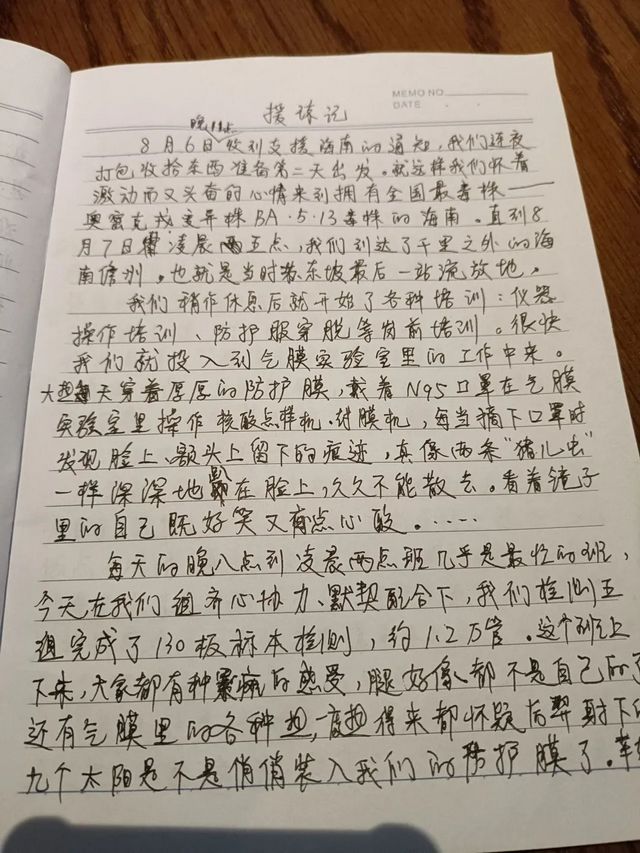 MEMO NO.
DATE
援琼记
晚11点
8月6日收到支援海南的通知，我们连夜
打包收拾东西准备第二天出发。就这样我们怀着
激动而又兴奋的心情来到拥有全国最毒株——
奥密克戎变异株BA·5·13毒株的海南。直到8
月7日凌晨五点，我们到达了千里之外的海
南儋州。也就是当时苏东坡最后一站流放地。
我们稍作休息后就开始了各种培训：仪器
操作培训、防护服穿脱等岗前培训。很快
我们就投入到气膜实验室里的工作中来。
大天穿着厚厚的防护膜，戴着N95口罩在气膜
实验室里操作核酸点样机、封膜机，每当摘下口罩时
发现脸上、额头上留下的痕迹，真像两条“猪儿虫”
一样深深地在脸上，久久不能散去。看着镜子
里的自己既好笑又有点心酸。……
每天的晚八点到凌晨两点班几乎是最忙的班，
今天在我们组齐心协力、默契配合下，我们检测五
组完成了130板标本检测，约1.2万管。这个班上
下来，大家都有种的感受，腿好像都不是自己的了
还有气膜里的各种热，得来都怀疑后羿射下的
九个太阳是不是悄悄装入我们的防护膜了。